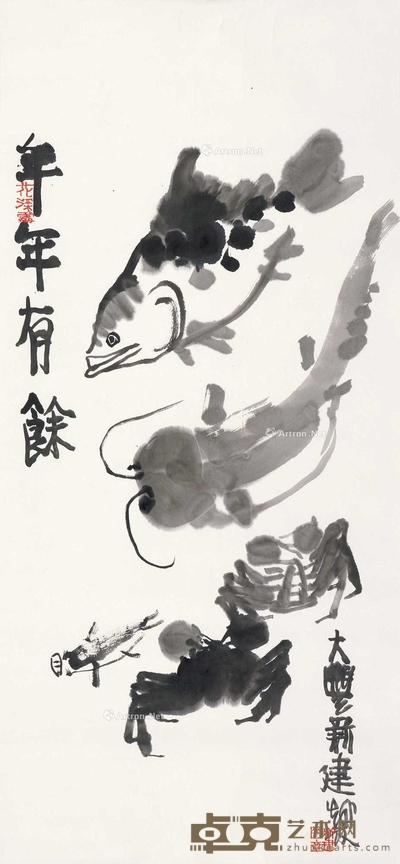 年年有餘
大豐新建
Artron.Net
Artron.Net
Artron.Net
卓克艺术网